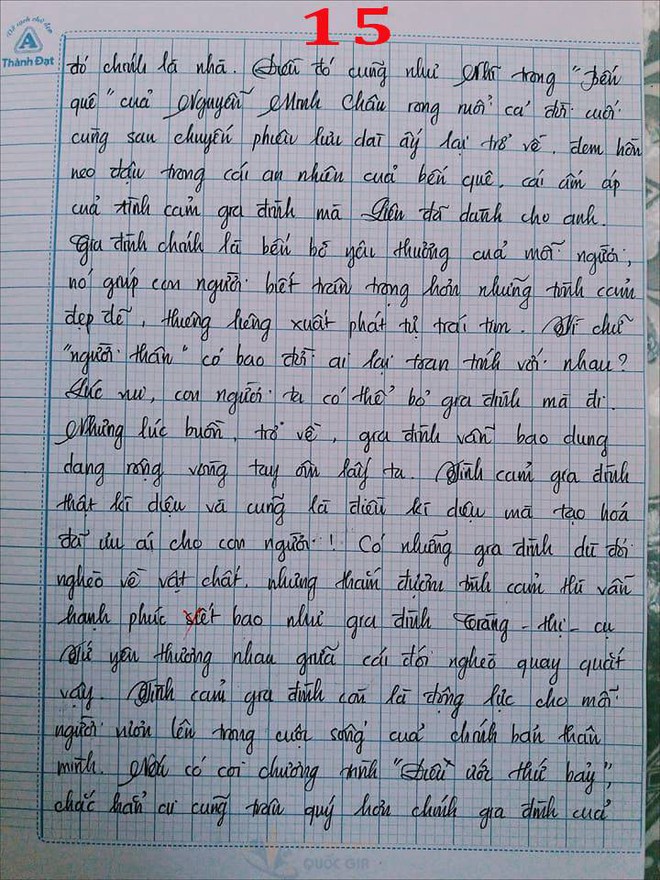 15
Vở sạch chữ đẹp
A
Thành Đạt
đó chính là nhà. Điều đó cũng như Nhĩ trong "Bến
quê" của Nguyễn Minh Châu rong ruổi cả đời cuối
cùng sau chuyến phiêu lưu dài ấy lại trở về, đem hồn
neo đậu trong cái an nhiên của bến quê, cái ấm áp
của tình cảm gia đình mà Liên đã dành cho anh.
Gia đình chính là bến bờ yêu thương của mỗi người,
nó giúp con người biết trân trọng hơn những tình cảm
đẹp đẽ, thương liêng xuất phát từ trái tim. Vì chữ
"người thân" có bao đời ai lại toan tính với nhau?
Lúc vui, con người ta có thể bỏ gia đình mà đi.
Nhưng lúc buồn, trở về, gia đình vẫn bao dung
dang rộng vòng tay ôm lấy ta. Tình cảm gia đình
thật kì diệu và cũng là điều kì diệu mà tạo hoá
đã ưu ái cho con người! Có những gia đình dù đói
nghèo về vật chất, nhưng thắm đượm tình cảm thì vẫn
hạnh phúc xiết bao như gia đình Tràng - thị - cụ
Tứ yêu thương nhau giữa cái đói nghèo quay quắt
vậy. Tình cảm gia đình còn là động lực cho mỗi
người vươn lên trong cuộc sống của chính bản thân
mình. Nếu có coi chương trình "Điều ước thứ bảy",
chắc hẳn ai cũng trân quý hơn chính gia đình của
QUỐC GIA